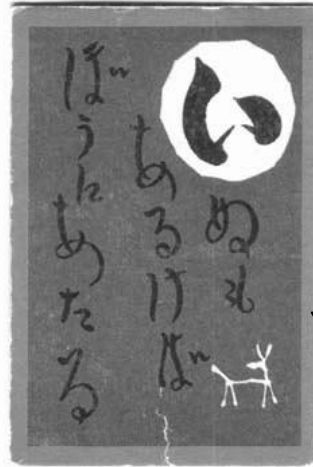 い
ぬも
あるけば
ぼうに
あたる